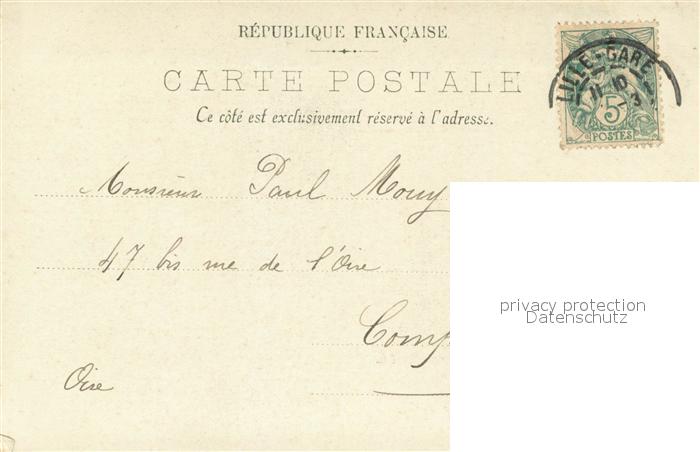 RÉPUBLIQUE FRANÇAISE
CARTE POSTALE
Ce côté est exclusivement réservé à l'adresse.
LILLE-GARE
5
POSTES
Monsieur Paul Mouy
47 bis rue de l'Oise
Comp
Oise
privacy protection
Datenschutz